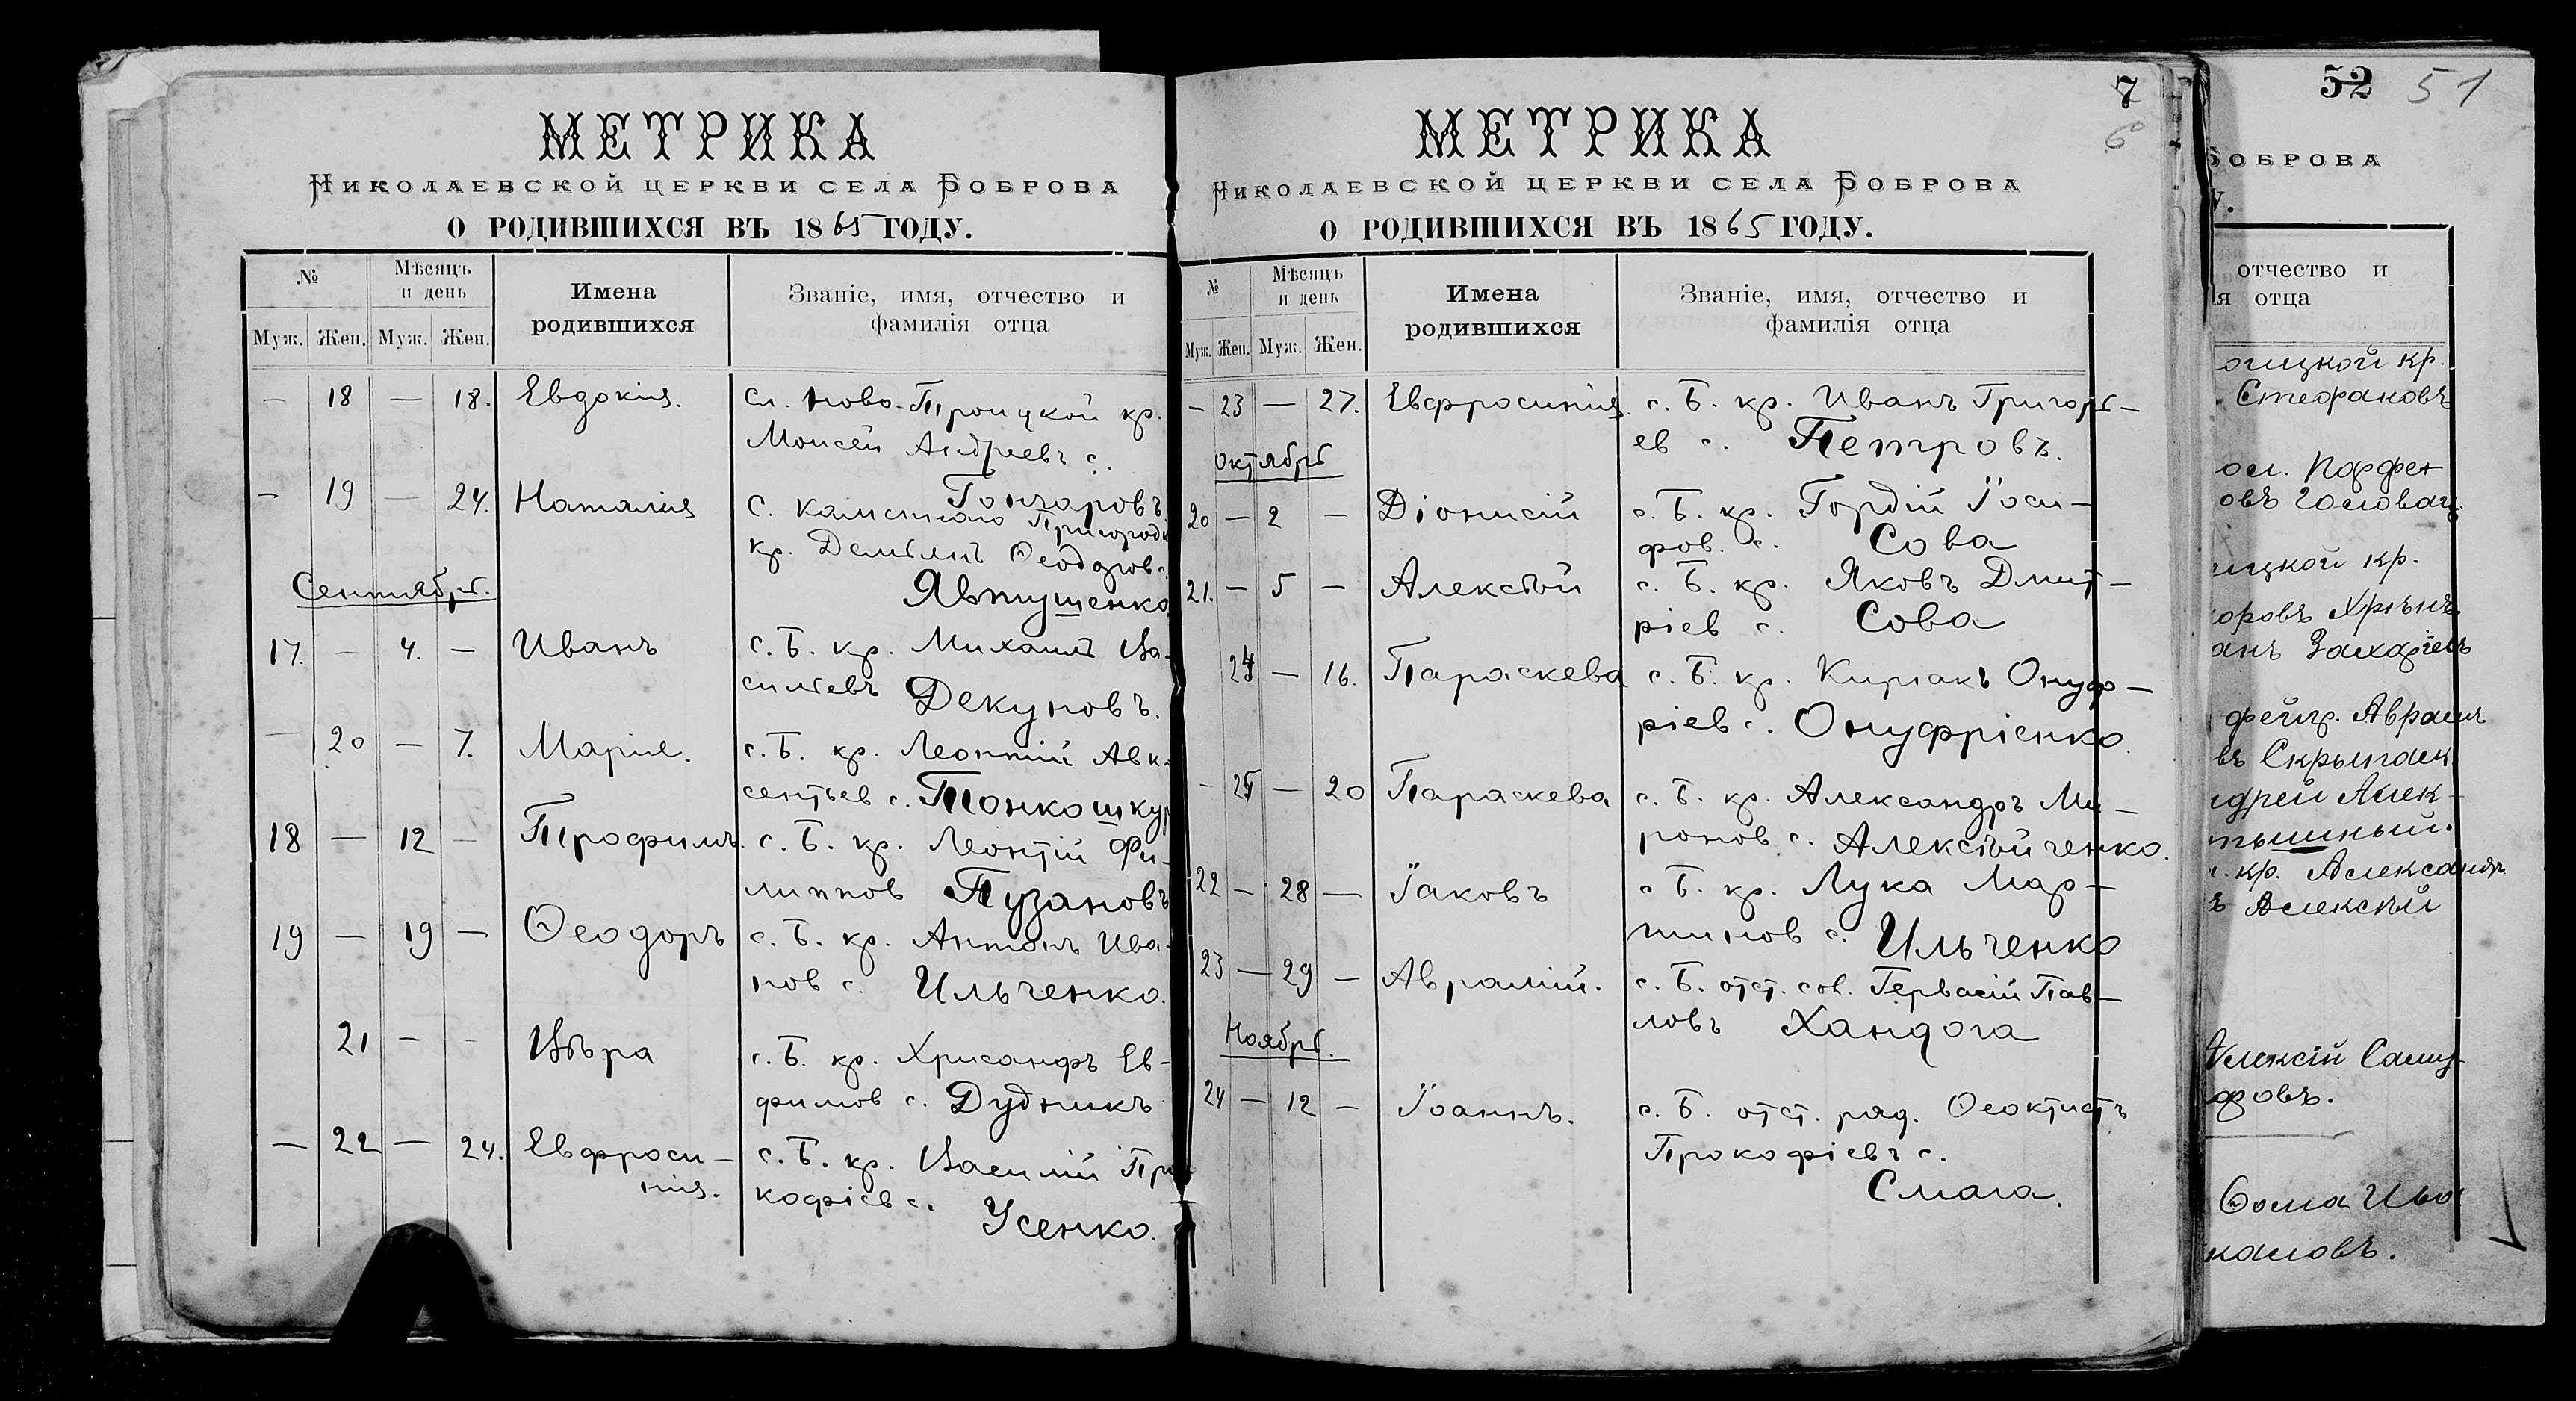 МЕТРИКА
Николаевской церкви села Боброва
О РОДИВШИХСЯ ВЪ 1865 ГОДУ.
№
Мѣсяцъ и день
Имена родившихся
Званіе, имя, отчество и фамилія отца
Муж. Жен. Муж. Жен.
— 18 — 18. Евдокия. Сл. Ново-Троицкой кр.
Моисей Андреевъ с.
Гончаровъ.
— 19 — 24. Наталия с. Каменного Пригородк
кр. Демьянъ Ѳеодоров с.
Явтушенко
Сентябрь.
17. — 4. — Иванъ с. Б. кр. Михаилъ Ва-
сильевъ Декуновъ.
— 20 — 7. Мария. с. Б. кр. Леонтій Авк-
сентьев с. Тонкошкур
18 — 12 — Трофимъ. с. Б. кр. Леонтій Фи-
липпов Пузановъ
19 — 19 — Ѳеодоръ с. Б. кр. Антонъ Ива-
нов с. Ильченко.
21 — - Вѣра с. Б. кр. Хрисанфъ Ев-
фимов с. Дудникъ
— 22 — 24. Евфроси- с. Б. кр. Василій Про
ния. кофіев с.
Усенко.
7
6
МЕТРИКА
Николаевской церкви села Боброва
О РОДИВШИХСЯ ВЪ 1865 ГОДУ.
№
Мѣсяцъ и день
Имена родившихся
Званіе, имя, отчество и фамилія отца
Муж. Жен. Муж. Жен.
— 23 — 27. Евфросинія. с. Б. кр. Иванъ Григорь-
ев с. Петровъ.
Октябрь
20 — 2 — Діонисій с. Б. кр. Гордій Іоси-
фов. с. Сова
21. — 5 — Алексѣй с. Б. кр. Яковъ Дмит-
ріев с. Сова
24 — 16. Параскева с. Б. кр. Киріакъ Онуф-
ріев с. Онуфріенко.
- 25 — 20 Параскева с. Б. кр. Александръ Ми-
ронов с. Алексѣйченко.
22 — 28 — Іаковъ с. Б. кр. Лука Мар-
тинов с. Ильченко
23 — 29 — Аврамій. с. Б. отст. сол. Гервасій Пав-
ловъ Хандога
Ноябрь.
24 — 12 — Іоаннъ. с. Б. отст. ряд. Ѳеоктистъ
Прокофіевъ с.
Смага.
52 51
Боброва
отчество и
я отца
оицкой кр.
Стефановъ
осл. Парфен
овъ Головач
ицкой кр.
оровъ Хрѣнъ
анъ Захаріевъ
фейер. Аврамъ
въ Скрыпаск
ндрей Алек-
тышный.
с. кр. Александръ
ъ Алексѣй
Алексій Саму-
фовъ.
Ѳома Ива
каловъ.